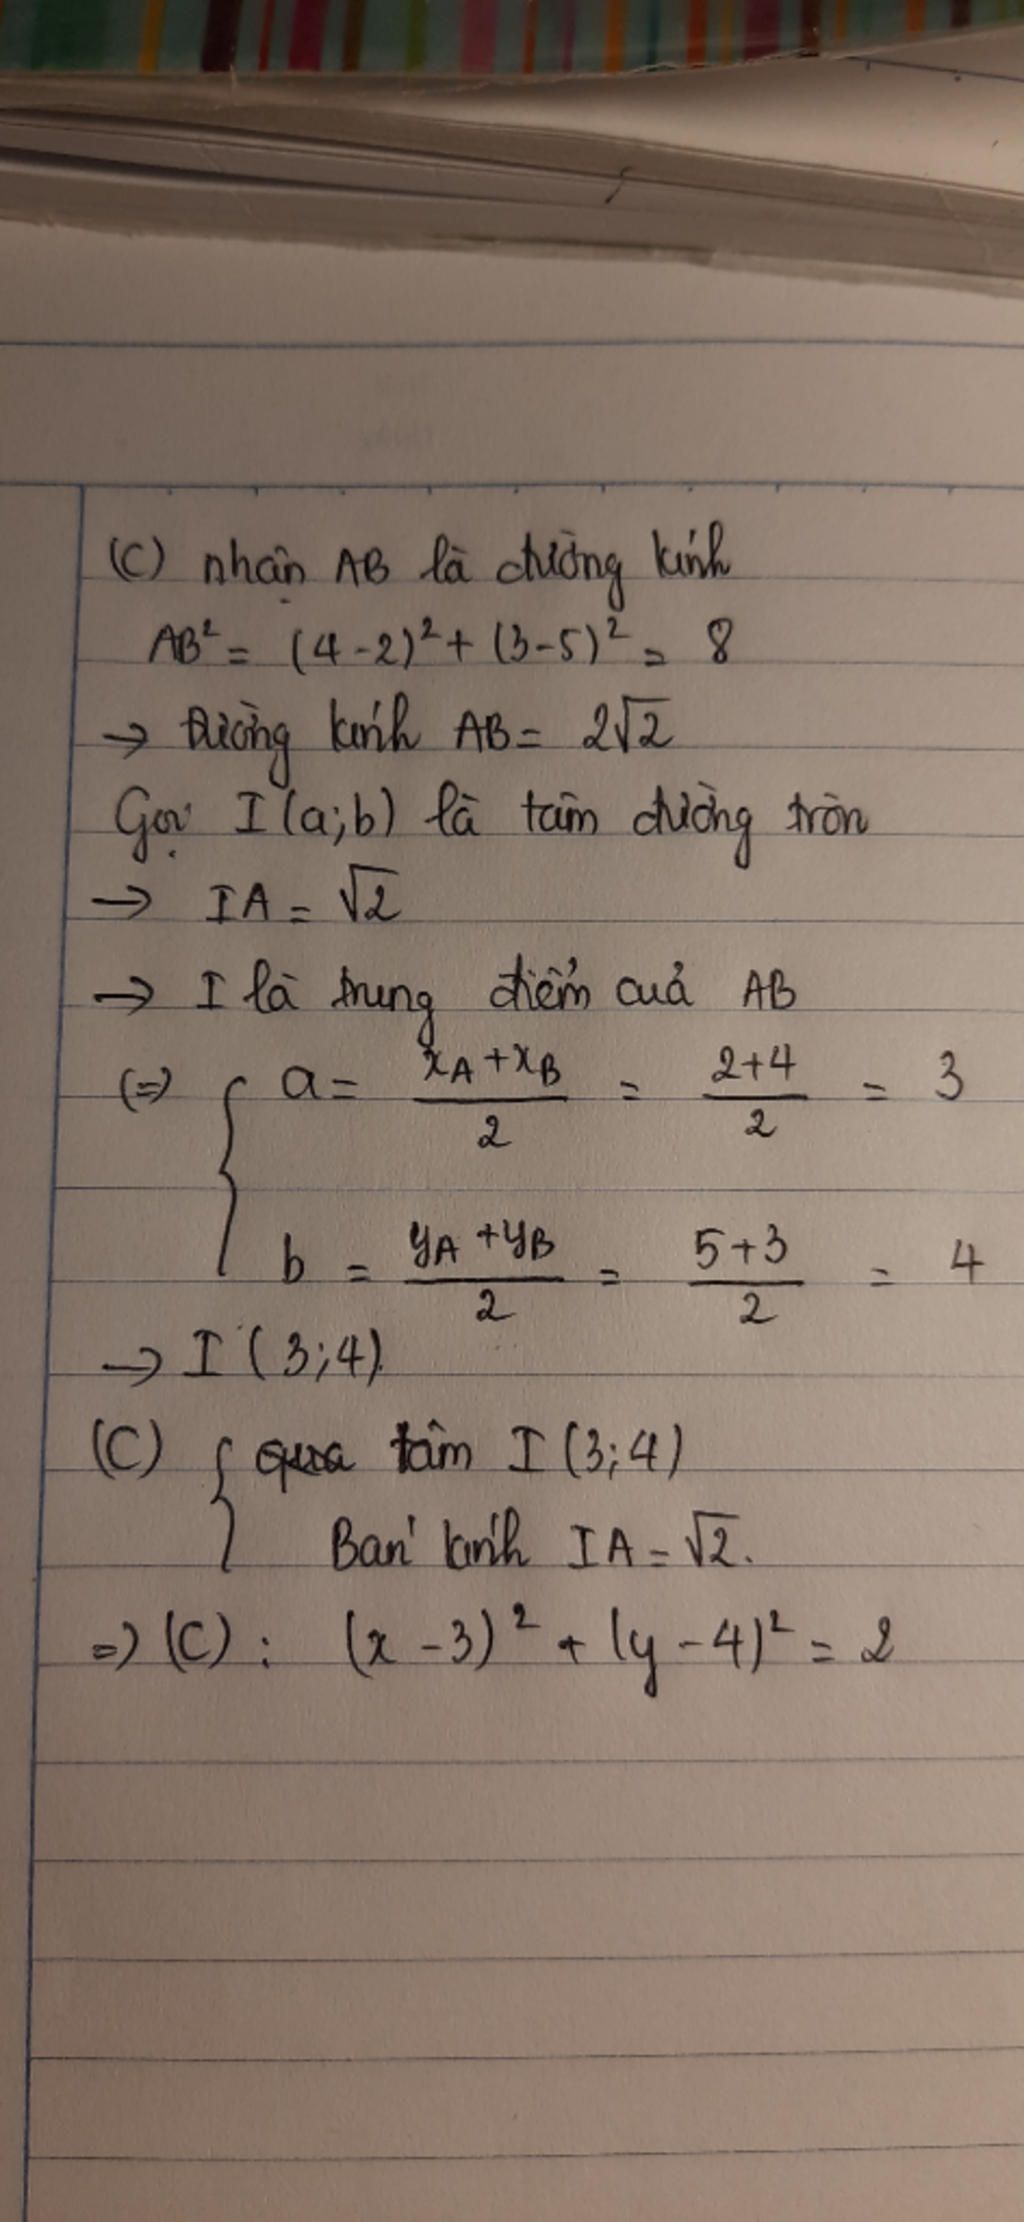 (C) nhận AB là đường kính
AB² = (4-2)² + (3-5)² = 8
→ Đường kính AB = 2√2
Gọi I(a;b) là tâm đường tròn
→ IA = √2
→ I là trung điểm của AB
(=) { a = (x_A + x_B)/2 = (2+4)/2 = 3
b = (y_A + y_B)/2 = (5+3)/2 = 4
→ I (3;4).
(C) { qua tâm I (3;4)
Bán kính IA = √2.
=) (C) : (x - 3)² + (y - 4)² = 2